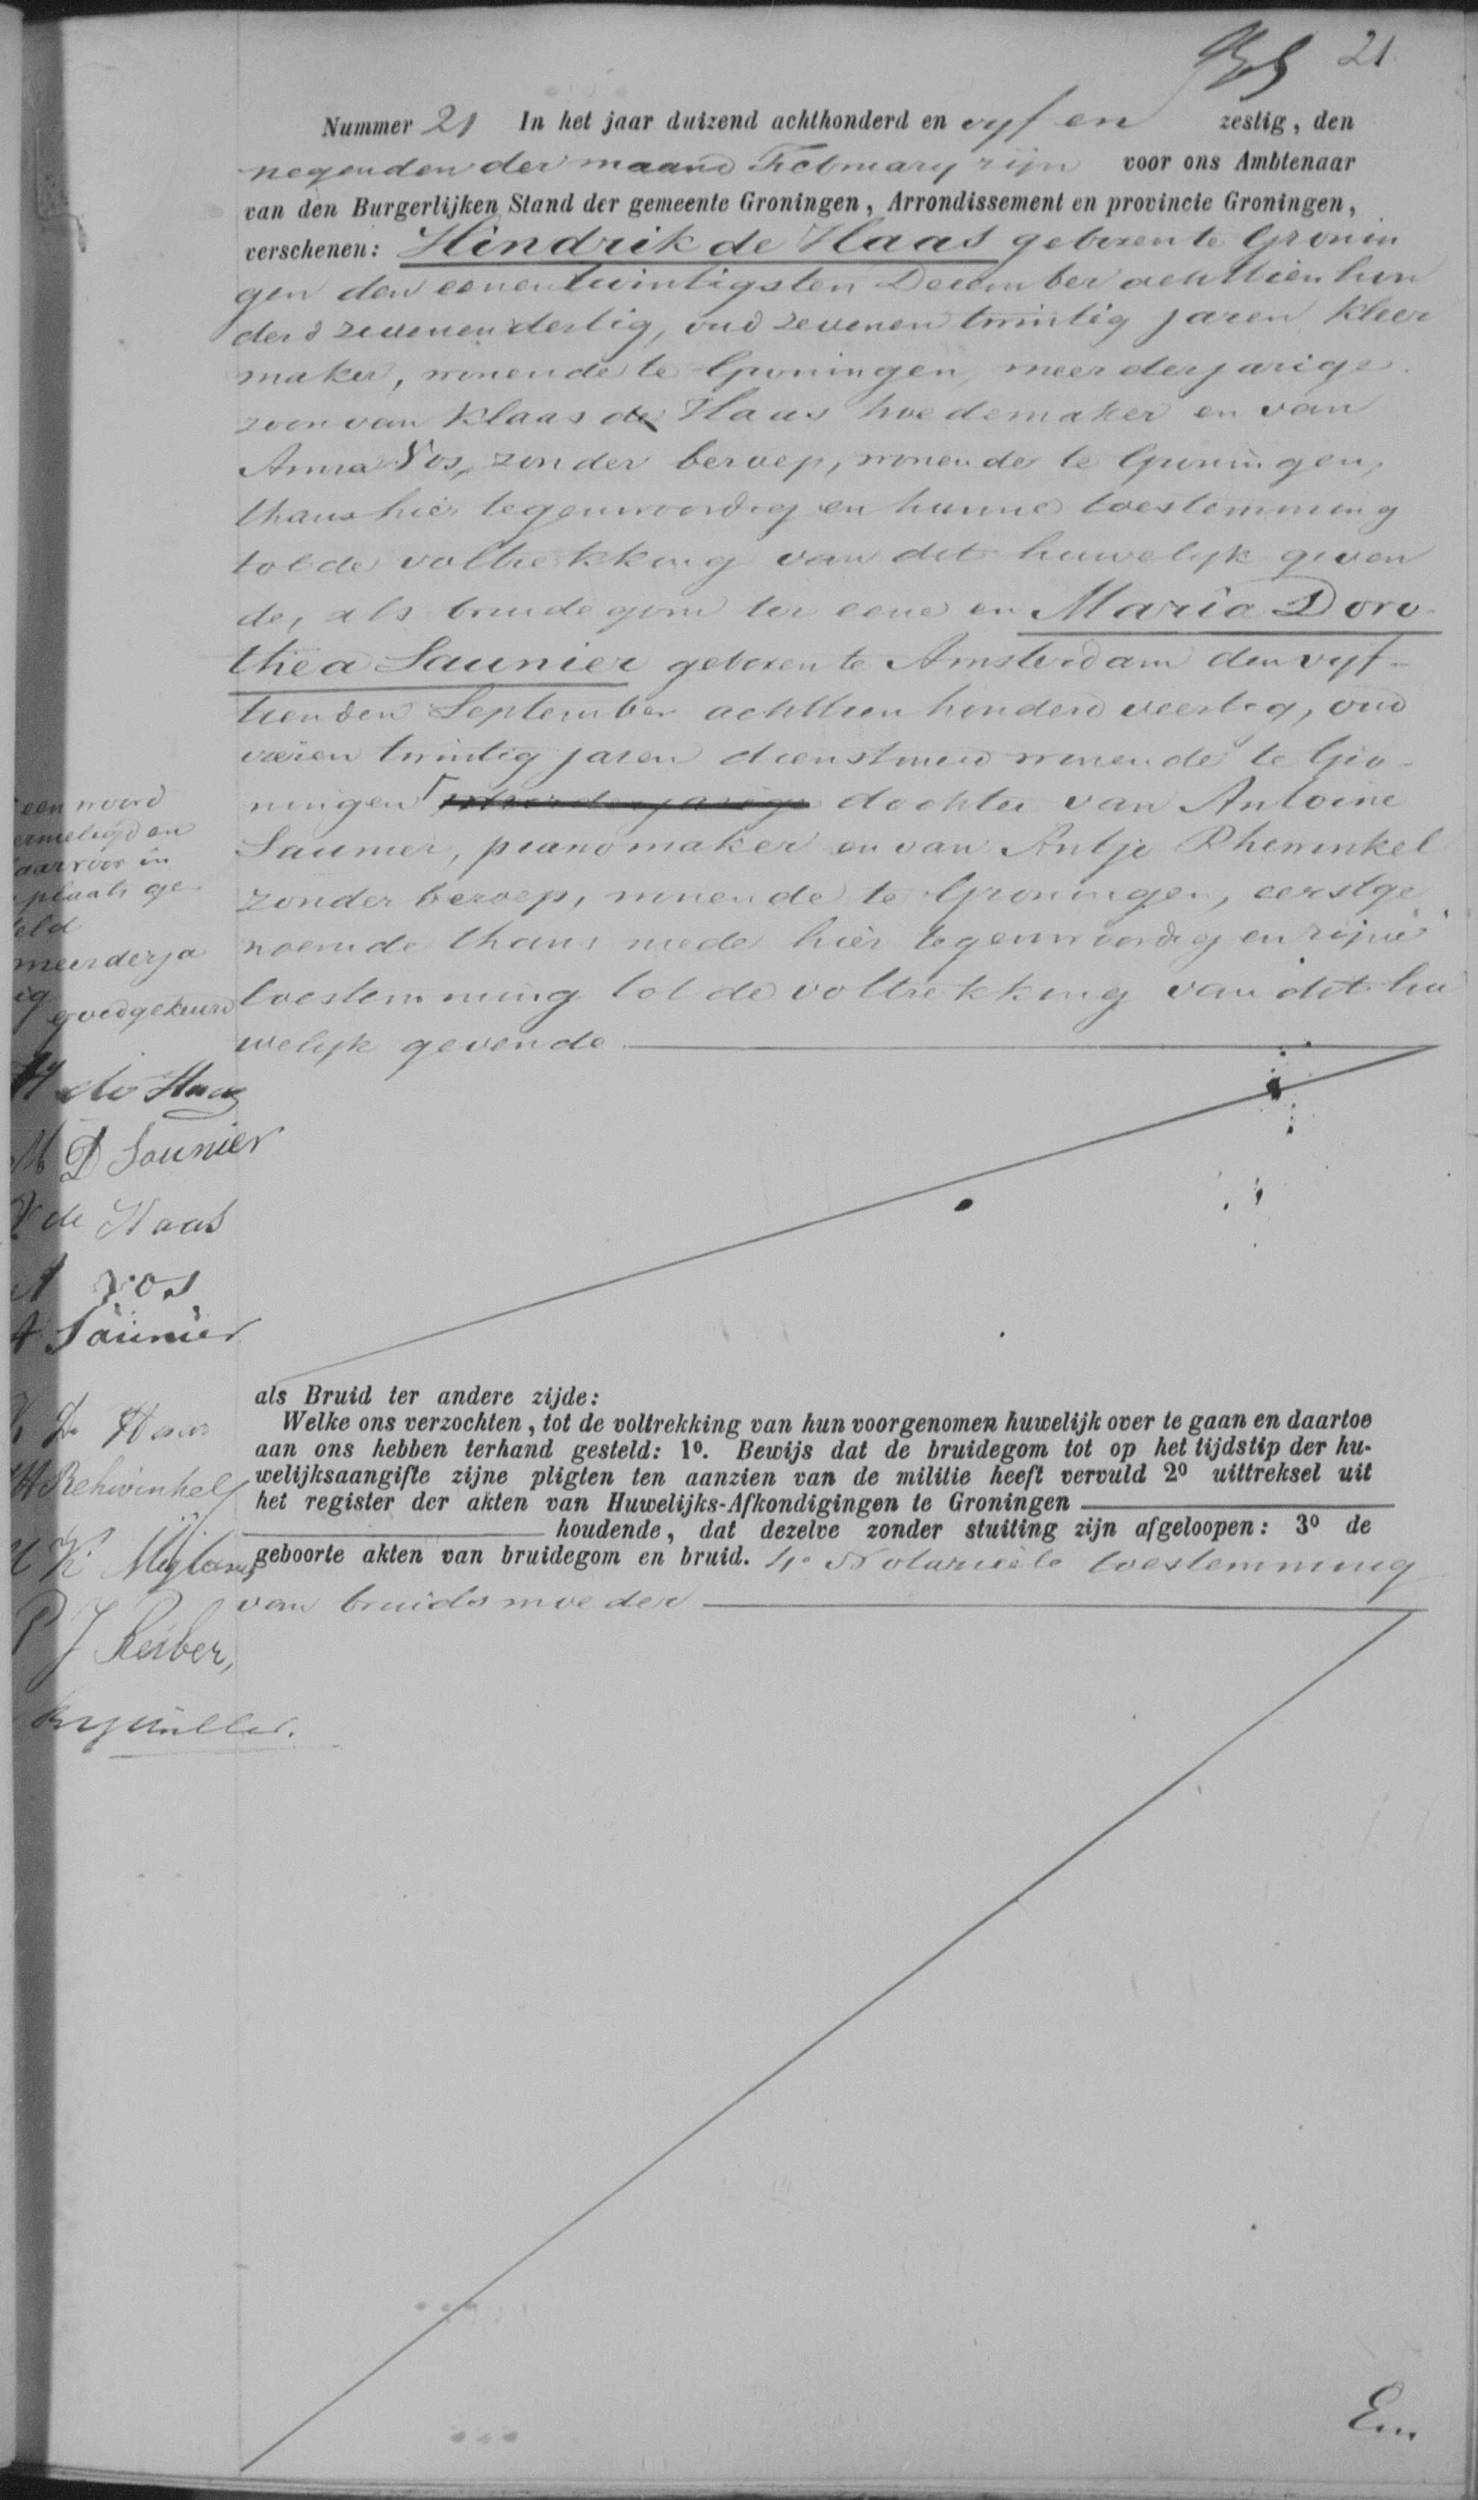 21
Nummer 21 In het jaar duizend achthonderd en vyf en zestig, den
negenden der maand February zijn voor ons Ambtenaar
van den Burgerlijken Stand der gemeente Groningen, Arrondissement en provincie Groningen,
verschenen: Hindrik de Haas geboren te Gronin
gen den eenentwintigsten December achttienhon
derd zevenendertig, oud zevenentwintig jaren kleer
maker, wonende te Groningen, meerderjarige
zoon van Klaas de Haas hoedemaker en van
Anna Vos, zonder beroep, wonende te Groningen,
thans hier tegenwoordig en hunne toestemming
tot de voltrekking van dit huwelyk geven
de, als bruidegom ter eene en Maria Doro-
thea Saunier geboren te Amsterdam den vyf-
tienden September achttien honderd veertig, oud
vieren twintig jaren dienstmeid wonende te Gro-
ningen meerderjarige dochter van Antoine
Saunier, pianomaker en van Antje Rhewinkel
zonder beroep, wonende te Groningen, eerstge
noemde thans mede hier tegenwoordig en zijne
toestemming tot de voltrekking van dit hu
welyk gevende
een woord
vernietigd en
daarvoor in
plaats ge
steld
meerderja
rig
goedgekeurd
H de Haas
M D Saunier
K de Haas
A Vos
A Saunier
K De Haas
H Rehwinkel
P J Reiber,
als Bruid ter andere zijde:
Welke ons verzochten, tot de voltrekking van hun voorgenomen huwelijk over te gaan en daartoe
aan ons hebben terhand gesteld: 1º. Bewijs dat de bruidegom tot op het tijdstip der hu-
welijksaangifte zijne pligten ten aanzien van de militie heeft vervuld 2º uittreksel uit
het register der akten van Huwelijks-Afkondigingen te Groningen
houdende, dat dezelve zonder stuiting zijn afgeloopen: 3º de
geboorte akten van bruidegom en bruid. 4º Notarieele toestemming
van bruids moeder
En